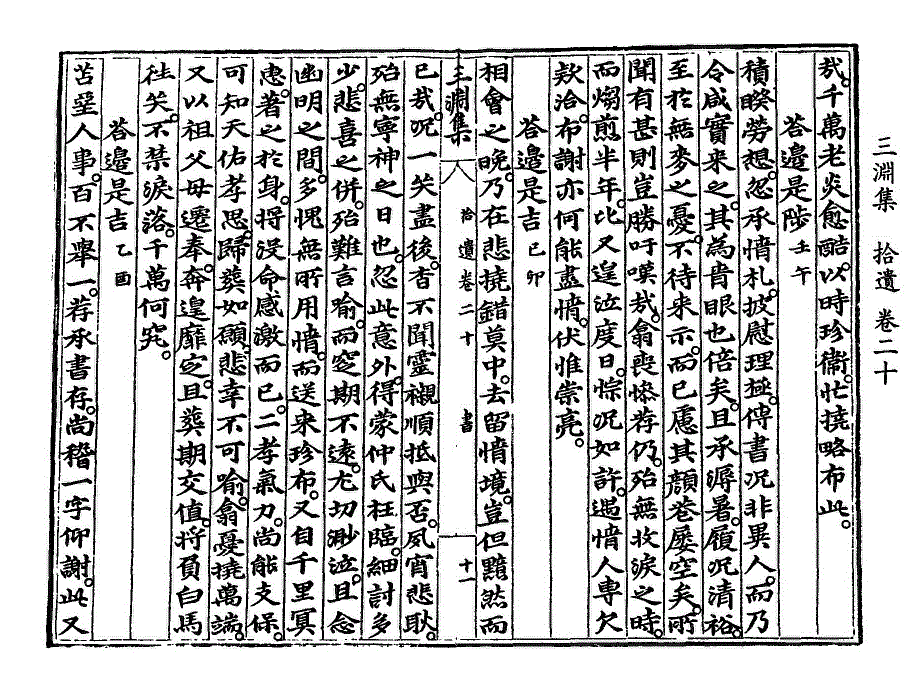 三淵集 拾遺 卷二十
哉。千萬老炎愈酷。以時珍衞。忙撓略布此。
答邊是陟 壬午
積睽勞想。忽承情札。披慰理極。俾書況非異人。而乃
令咸實來之。其爲靑眼也倍矣。且承溽暑。履況淸裕。
至於無麥之憂。不待來示。而已慮其顔巷屢空矣。所
聞有甚則豈勝吁嘆哉。翕喪慘荐仍。殆無收淚之時。
而煼煎半年。比又遑泣度日。悰況如許。遇情人專欠
款洽。布謝亦何能盡情。伏惟崇亮。
答邊是吉 己卯
相會之晩。乃在悲撓錯莫中。去留情境。豈但黯然而
三淵集 拾遺卷二十 書 十一
已哉。況一笑盡後。杳不聞靈櫬順抵與否。夙宵悲耿。
殆無寧神之日也。忽此意外。得蒙仲氏枉臨。細討多
少。悲喜之倂。殆難言喩。而窆期不遠。尤切渺泣。且念
幽明之間。多愧無所用情。而送來珍布。又自千里冥
惠。著之於身。將沒命感激而已。二孝氣力。尙能支保。
可知天佑孝思。歸葬如願。悲幸不可喩。翕憂撓萬端。
又以祖父母遷奉。奔遑靡定。且葬期交値。將負白馬
徃矣。不禁淚落。千萬何究。
答邊是吉 乙酉
苫堊人事。百不擧一。荐承書存。尙稽一字仰謝。此又